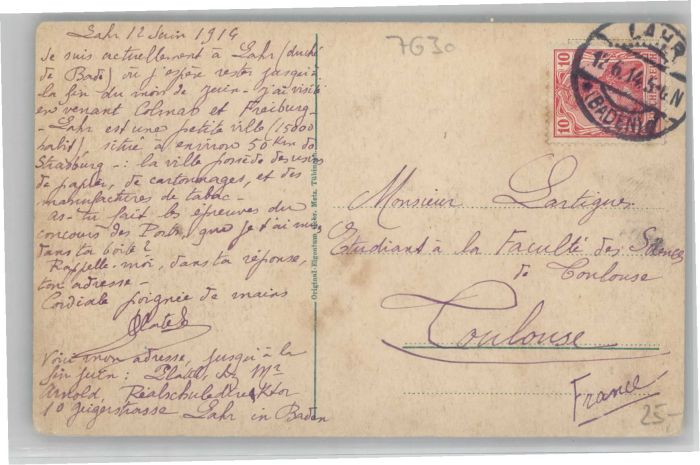 Lahr 12 Juin 1914
Je suis actuellement à Lahr (duché
de Bade) où j'espère rester jusqu'à
la fin du mois de juin - j'ai visité
en venant Colmar et Freiburg -
- Lahr est une petite ville (15000
habit), situé à environ 50 Km de
Strasburg - : la ville possède des usines
de papier, de cartonnages, et des
manufactures de tabac -
as-tu fait les épreuves du
concours des Ponts, que je t'ai mis
dans ta boîte ?
Rappelle-moi, dans ta réponse,
ton adresse -
Cordiale poignée de mains
Platel
Voici mon adresse, jusqu'à la
fin juin : Platel, Mr
Arnold, Realschuledirektor
10 Jägerstrasse Lahr in Baden
Original-Eigentum Gebr. Metz, Tübingen
7G30
LAHR
12.6.14.5-6N
(BADEN)
10
10
Monsieur Lartigues
Etudiant à la Faculté des Sciences
de Toulouse
Toulouse
France
25-